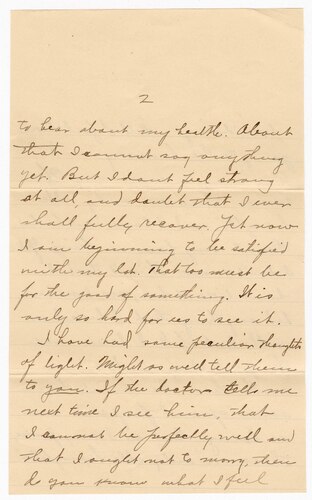 2
to hear about my health. About
that I cannot say anything
yet. But I dont feel strong
at all, and doubt that I ever
shall fully recover. Yet now
I am beginning to be satisfied
with my lot. That too must be
for the good of something. It is
only so hard for us to see it.
I have had some peculiar thoughts
of light. Might as well tell them
to you. If the doctor tells me
next time I see him, that
I cannot be perfectly well and
that I ought not to marry, then
do you know what I feel